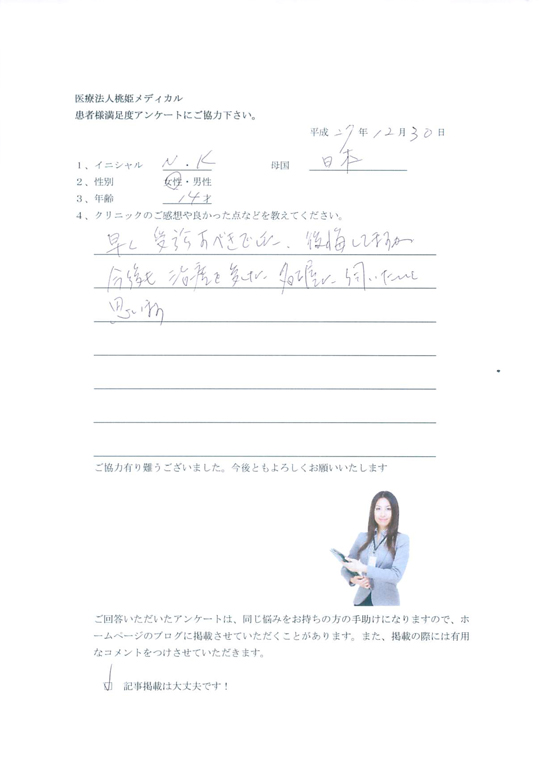 医療法人桃姫メディカル
患者様満足度アンケートにご協力下さい。
平成 27年 12月 30日
1、イニシャル N・K 母国 日本
2、性別 女性・男性
3、年齢 14才
4、クリニックのご感想や良かった点などを教えてください。
早く 受診すべきでした、後悔してますが
今後も 治療を 名古屋に 伺いたいと
思います
ご協力有り難うございました。今後ともよろしくお願いいたします
ご回答いただいたアンケートは、同じ悩みをお持ちの方の手助けになりますので、ホ
ームページのブログに掲載させていただくことがあります。また、掲載の際には有用
なコメントをつけさせていただきます。
記事掲載は大丈夫です！